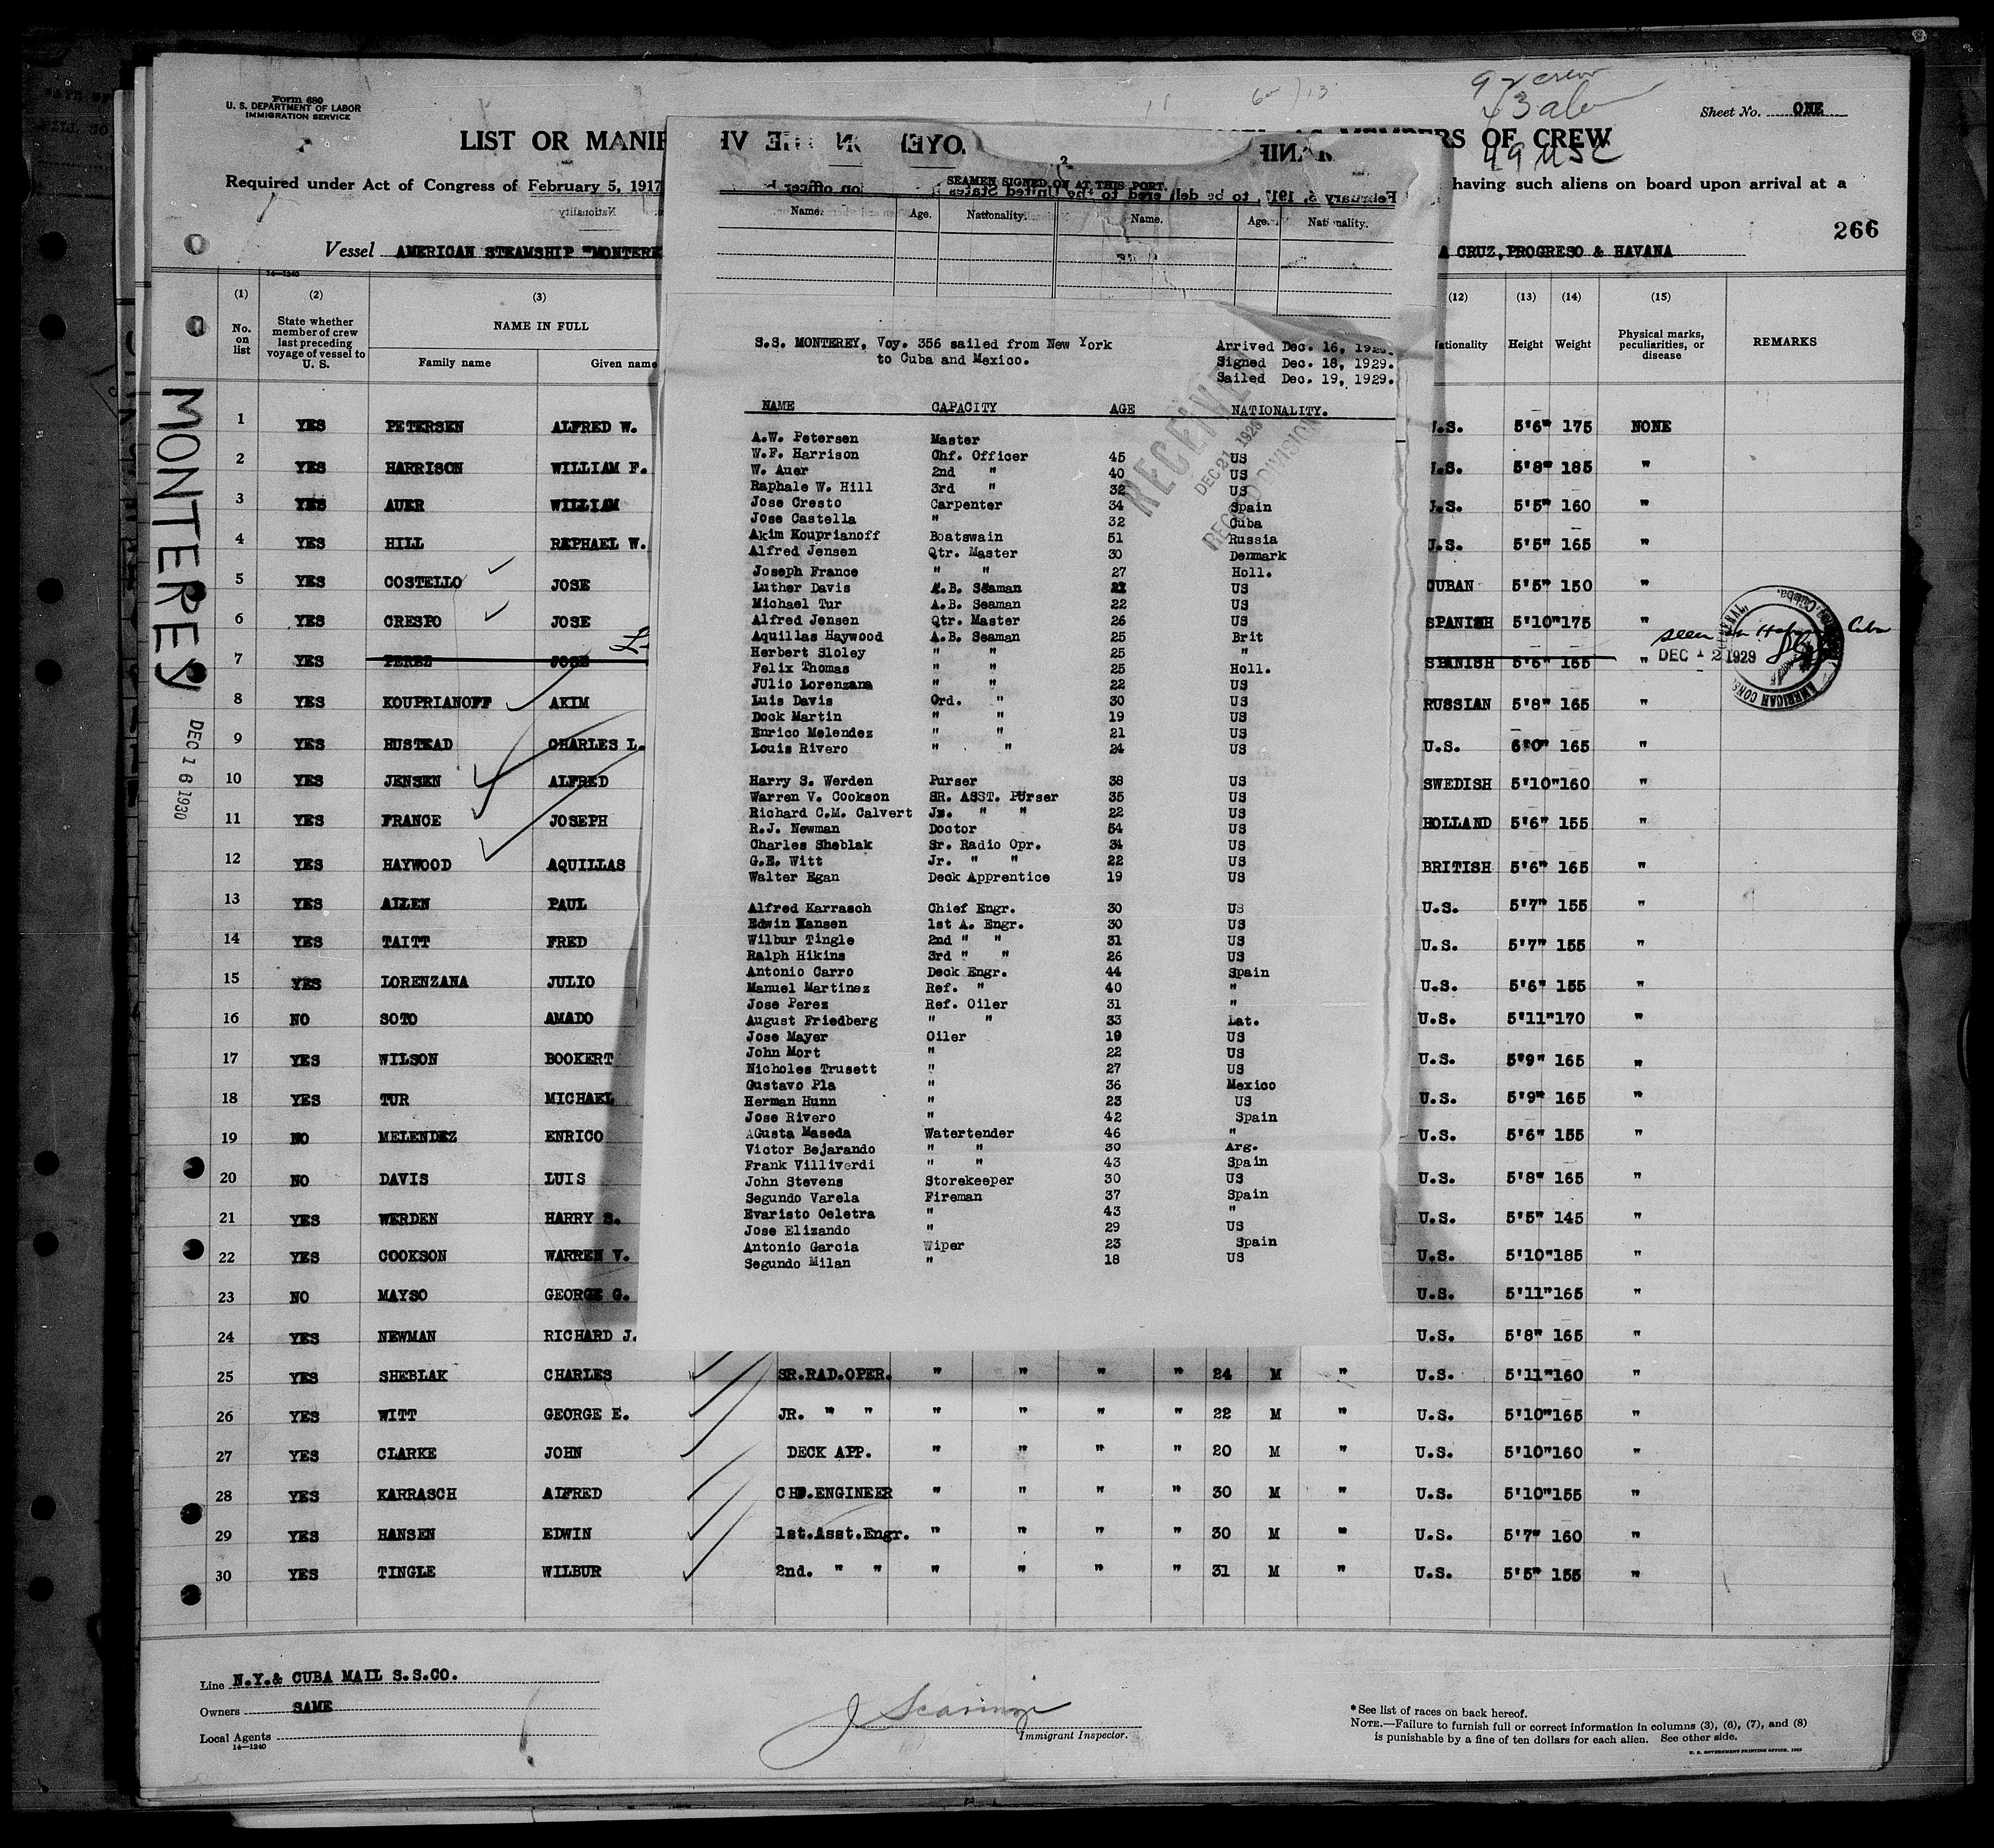 Form 680
U. S. DEPARTMENT OF LABOR
IMMIGRATION SERVICE
Sheet No. ONE
LIST OR MANIF
RS OF CREW
Required under Act of Congress of February 5, 1917
having such aliens on board upon arrival at a
266
Vessel AMERICAN STEAMSHIP "MONTERE
A CRUZ, PROGRESO & HAVANA
14—1240
(1) (2) (3) (12) (13) (14) (15)
No. on list
State whether member of crew last preceding voyage of vessel to U. S.
NAME IN FULL
Family name Given name
ationality Height Weight
Physical marks, peculiarities, or disease
REMARKS
MONTEREY
DEC 16 1930
1 YES PETERSEN ALFRED W. .S. 5'6" 175 NONE
2 YES HARRISON WILLIAM F. .S. 5'8" 185 "
3 YES AUER WILLIAM .S. 5'5" 160 "
4 YES HILL RAPHAEL W. .S. 5'5" 165 "
5 YES COSTELLO JOSE CUBAN 5'5" 150 "
6 YES CRESPO JOSE SPANISH 5'10" 175 "
7 YES PEREZ JOSE SPANISH 5'6" 165 "
seen in Habana Cuba
DEC 12 1929
AMERICAN CONS
8 YES KOUPRIANOFF AKIM RUSSIAN 5'8" 165 "
9 YES HUSTEAD CHARLES L. U.S. 6'0" 165 "
10 YES JENSEN ALFRED SWEDISH 5'10" 160 "
11 YES FRANCE JOSEPH HOLLAND 5'6" 155 "
12 YES HAYWOOD AQUILLAS BRITISH 5'6" 165 "
13 YES ALLEN PAUL U.S. 5'7" 155 "
14 YES TAITT FRED U.S. 5'7" 155 "
15 YES LORENZANA JULIO U.S. 5'6" 155 "
16 NO SOTO AMADO U.S. 5'11" 170 "
17 YES WILSON BOOKERT U.S. 5'9" 165 "
18 YES TUR MICHAEL U.S. 5'9" 165 "
19 NO MELENDEZ ENRICO U.S. 5'6" 155 "
20 NO DAVIS LUIS U.S. 5'8" 165 "
21 YES WERDEN HARRY S. U.S. 5'5" 145 "
22 YES COOKSON WARREN V. U.S. 5'10" 185 "
23 NO MAYSO GEORGE G. U.S. 5'11" 165 "
24 YES NEWMAN RICHARD J. U.S. 5'8" 165 "
25 YES SHEBLAK CHARLES SR.RAD.OPER. " " " " 24 M " U.S. 5'11" 160 "
26 YES WITT GEORGE E. JR. " " " " " " 22 M " U.S. 5'10" 165 "
27 YES CLARKE JOHN DECK APP. " " " " 20 M " U.S. 5'10" 160 "
28 YES KARRASCH ALFRED CHF.ENGINEER " " " " 30 M " U.S. 5'10" 155 "
29 YES HANSEN EDWIN 1st.Asst.Engr. " " " " 30 M " U.S. 5'7" 160 "
30 YES TINGLE WILBUR 2nd. " " " " " " 31 M " U.S. 5'5" 155 "
2
SEAMEN SIGNED ON AT THIS PORT.
Name. Age. Nationality. Name. Age. Nationality.
S.S. MONTEREY, Voy. 356 sailed from New York
to Cuba and Mexico.
Arrived Dec. 16, 1929.
Signed Dec. 18, 1929.
Sailed Dec. 19, 1929.
RECEIVED
DEC 21 1929
RECORD DIVISION
NAME CAPACITY AGE NATIONALITY.
A.W. Petersen Master
W.F. Harrison Chf. Officer 45 US
W. Auer 2nd " 40 US
Raphale W. Hill 3rd " 32 US
Jose Cresto Carpenter 34 Spain
Jose Castella " 32 Cuba
Akim Kouprianoff Boatswain 51 Russia
Alfred Jensen Qtr. Master 30 Denmark
Joseph France " " 27 Holl.
Luther Davis A.B. Seaman US
Michael Tur A.B. Seaman 22 US
Alfred Jensen Qtr. Master 26 US
Aquillas Haywood A.B. Seaman 25 Brit
Herbert Sloley " " 25 "
Felix Thomas " " 25 Holl.
JUlio Lorenzana " " 22 US
Luis Davis Ord. " 30 US
Dock Martin " " 19 US
Enrico Melendez " " 21 US
Louis Rivero " " 24 US
Harry S. Werden Purser 38 US
Warren V. Cookson SR. ASST. Purser 35 US
Richard C.M. Calvert Jr. " " 22 US
R.J. Newman Doctor 54 US
Charles Sheblak Sr. Radio Opr. 34 US
G.E. Witt Jr. " " 22 US
Walter Egan Deck Apprentice 19 US
Alfred Karrasch Chief Engr. 30 US
Edwin Hansen 1st A. Engr. 30 US
Wilbur Tingle 2nd " " 31 US
Ralph Hikins 3rd " " 26 US
Antonio Carro Deck Engr. 44 Spain
Manuel Martinez Ref. " 40 "
Jose Perez Ref. Oiler 31 "
August Friedberg " " 33 Lat.
Jose Mayer Oiler 19 US
John Mort " 22 US
Nicholes Trusett " 27 US
Gustavo Pla " 36 Mexico
Herman Hunn " 23 US
Jose Rivero " 42 Spain
AGusta Maseda Watertender 46 "
Victor Bejarando " " 30 Arg.
Frank Villiverdi " " 43 Spain
John Stevens Storekeeper 30 US
Segundo Varela Fireman 37 Spain
Evaristo Oeletra " 43 "
Jose Elizando " 29 US
Antonio Garcia Wiper 23 Spain
Segundo Milan " 18 US
Line N.Y.& CUBA MAIL S.S.CO.
Owners SAME
Local Agents
14—1240
Immigrant Inspector.
*See list of races on back hereof.
NOTE.—Failure to furnish full or correct information in columns (3), (6), (7), and (8)
is punishable by a fine of ten dollars for each alien. See other side.
U. S. GOVERNMENT PRINTING OFFICE